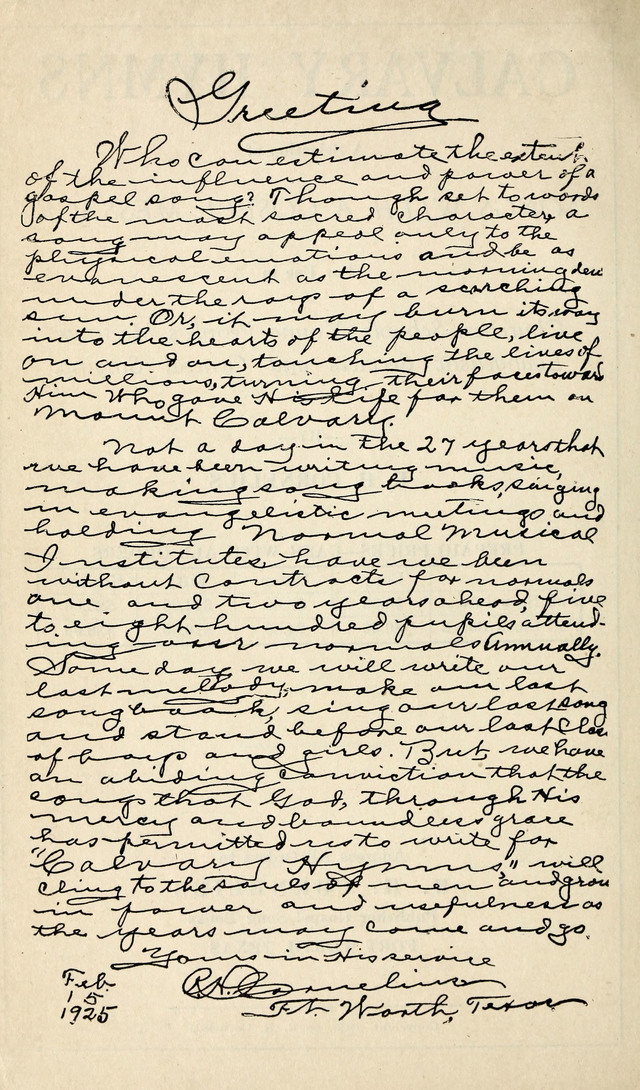 Greeting
Who can estimate the extent
of the influence and power of a
gospel song? Though set to words
of the most sacred character, a
song may appeal only to the
physical emotions and be as
evanescent as the morning dew
under the rays of a scorching
sun. Or, it may burn its way
into the hearts of the people, live
on and on, touching the lives of
millions, turning their faces toward
Him Who gave His life for them on
Mount Calvary.
Not a day in the 27 years that
we have been writing music,
making song books, singing
in evangelistic meetings and
holding Normal Musical
Institutes, have we been
without contracts for normals
one and two years ahead, five
to eight hundred pupils attend-
ing our normals annually.
Some day we will write our
last melody, make our last
song book, sing our last song
and stand before our last class
of boys and girls. But, we have
an abiding conviction that the
songs that God, through His
mercy and boundless grace
has permitted us to write for
"Calvary Hymns," will
cling to the souls of men and grow
in power and usefulness as
the years may come and go.
Yours in His service
R.H. Cornelius
Ft. Worth, Texas
Feb.
15
1925